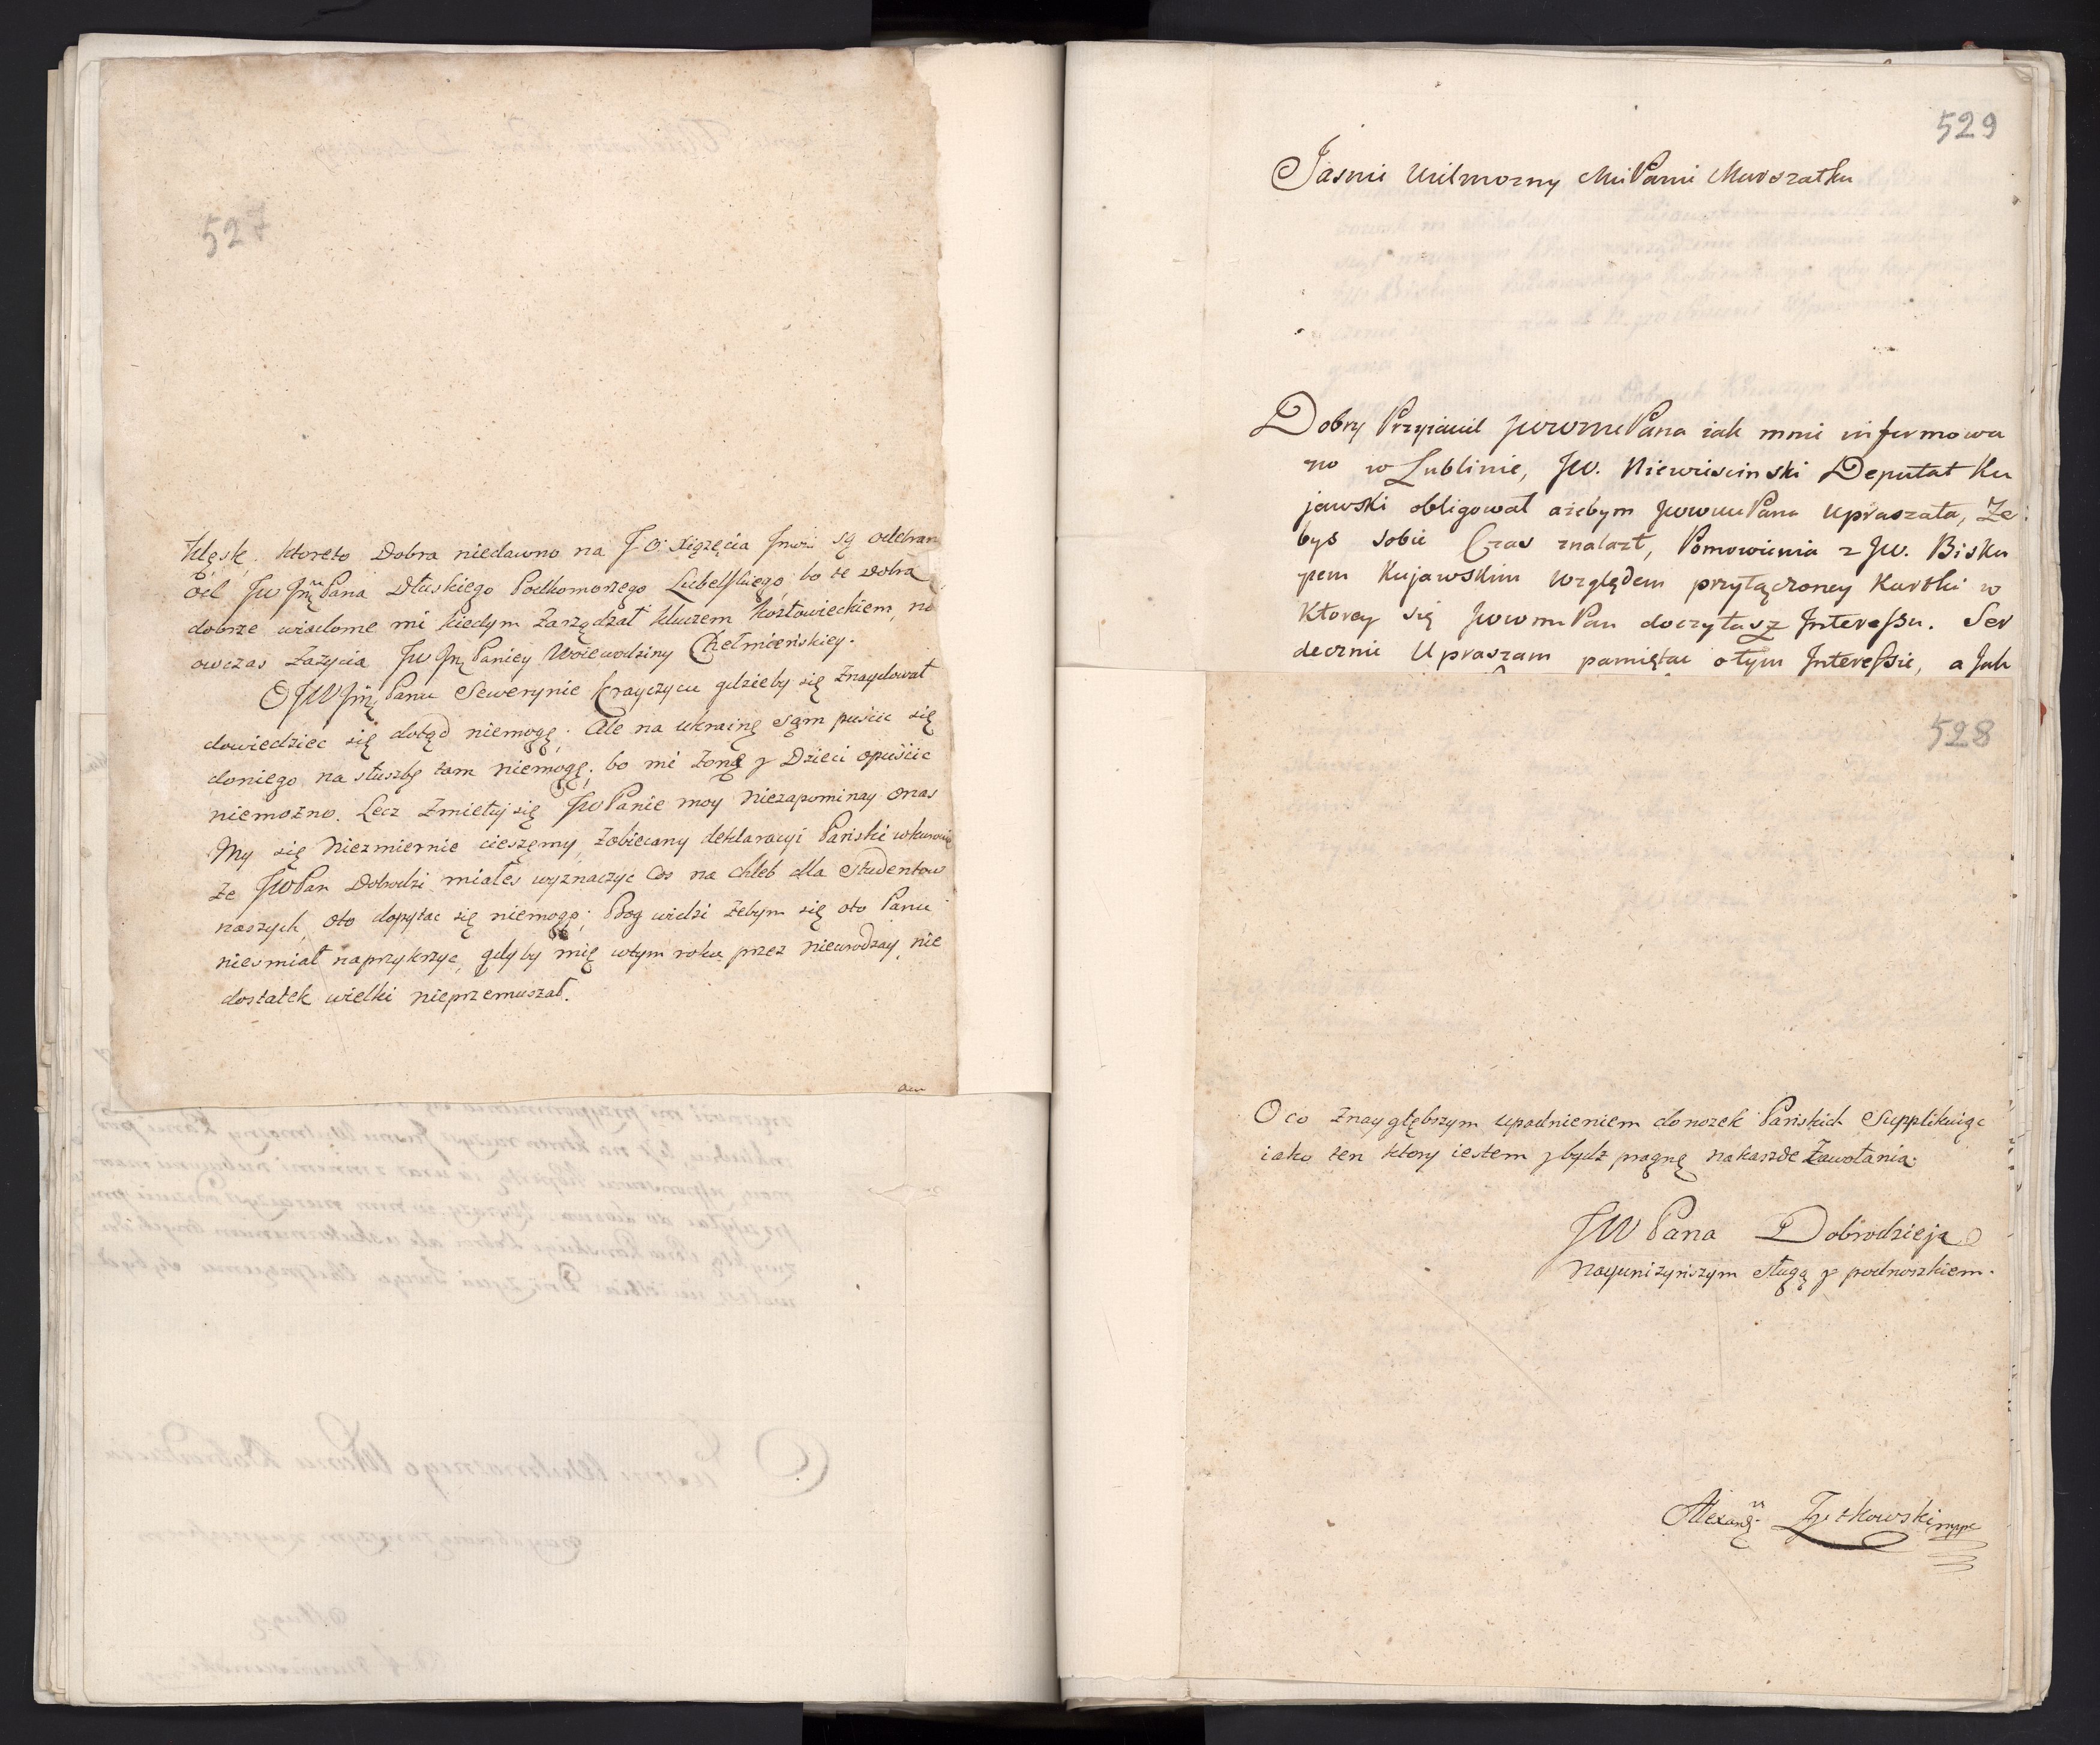 527
Klęskę. ktoreto Dobra niedawno na J. O. Xiązęcia Jmci są odebran
od JW Jmę Pana Dłuskiego Podkomorzego Lubelskiego, bo te Dobra
dobrze wiadome mi kiedym Zarządzał kluczem Kozłowieckiem, na
owczas Zażycia JW Jmę Paniey Woiewodziny Chełmienskiey.
O JW Jmę Panu Sewerynie Krayczycu gdzieby się Znaydował
dowiedziec się dotąd niemogę. Ale na ukrainę sam puścic się
doniego na słuszbę tam niemogę; bo mi Zonę y Dzieci opuścic
niemożno. Lecz Zmiełuj się JW Panie moy niezapominay onas
My się Niezmiernie cieszęmy, Zobiecany deklaracyi Pański
Ze JW Pan Dobrodzi miałes wyznaczyc Cos na chleb dla Studentow
naszych, oto dopytac się niemogę; Bog widzi Zebym się oto Panu
niesmiał naprzykrzyc, gdyby mię wtym roku przez nieurodzay, nie
dostatek wielki nieprzemuszał.
529
Jasnie Wielmozny Mci Panie Marszałku
Dobry Przyiaciel JWWMci Pana iak mnie infurmowa
no w Lublinie, JW. Niewiescinski Deputat Ku
jawski obligował ażebym JWWMci Pana upraszała, Ze
bys sobie Czas znalazł, Pomowienia z JW. Bisku
pem Kujawskim względem przyłączoney Kartki w
Ktorey się JWWMci Pan doczytasz Interessu. Ser
decznie Upraszam pamiętac otym Interessie, a Jak
528
O co Znaygłębszym upadnieniem donozek Pańskich Supplikuiąc
iako ten ktory iestem y bydz pragnę nakaszde Zawołania.
JW Pana Dobrodzieja
Nayunizyńszym sługą y podnoszkiem.
Alexand. Zytkowski mppr